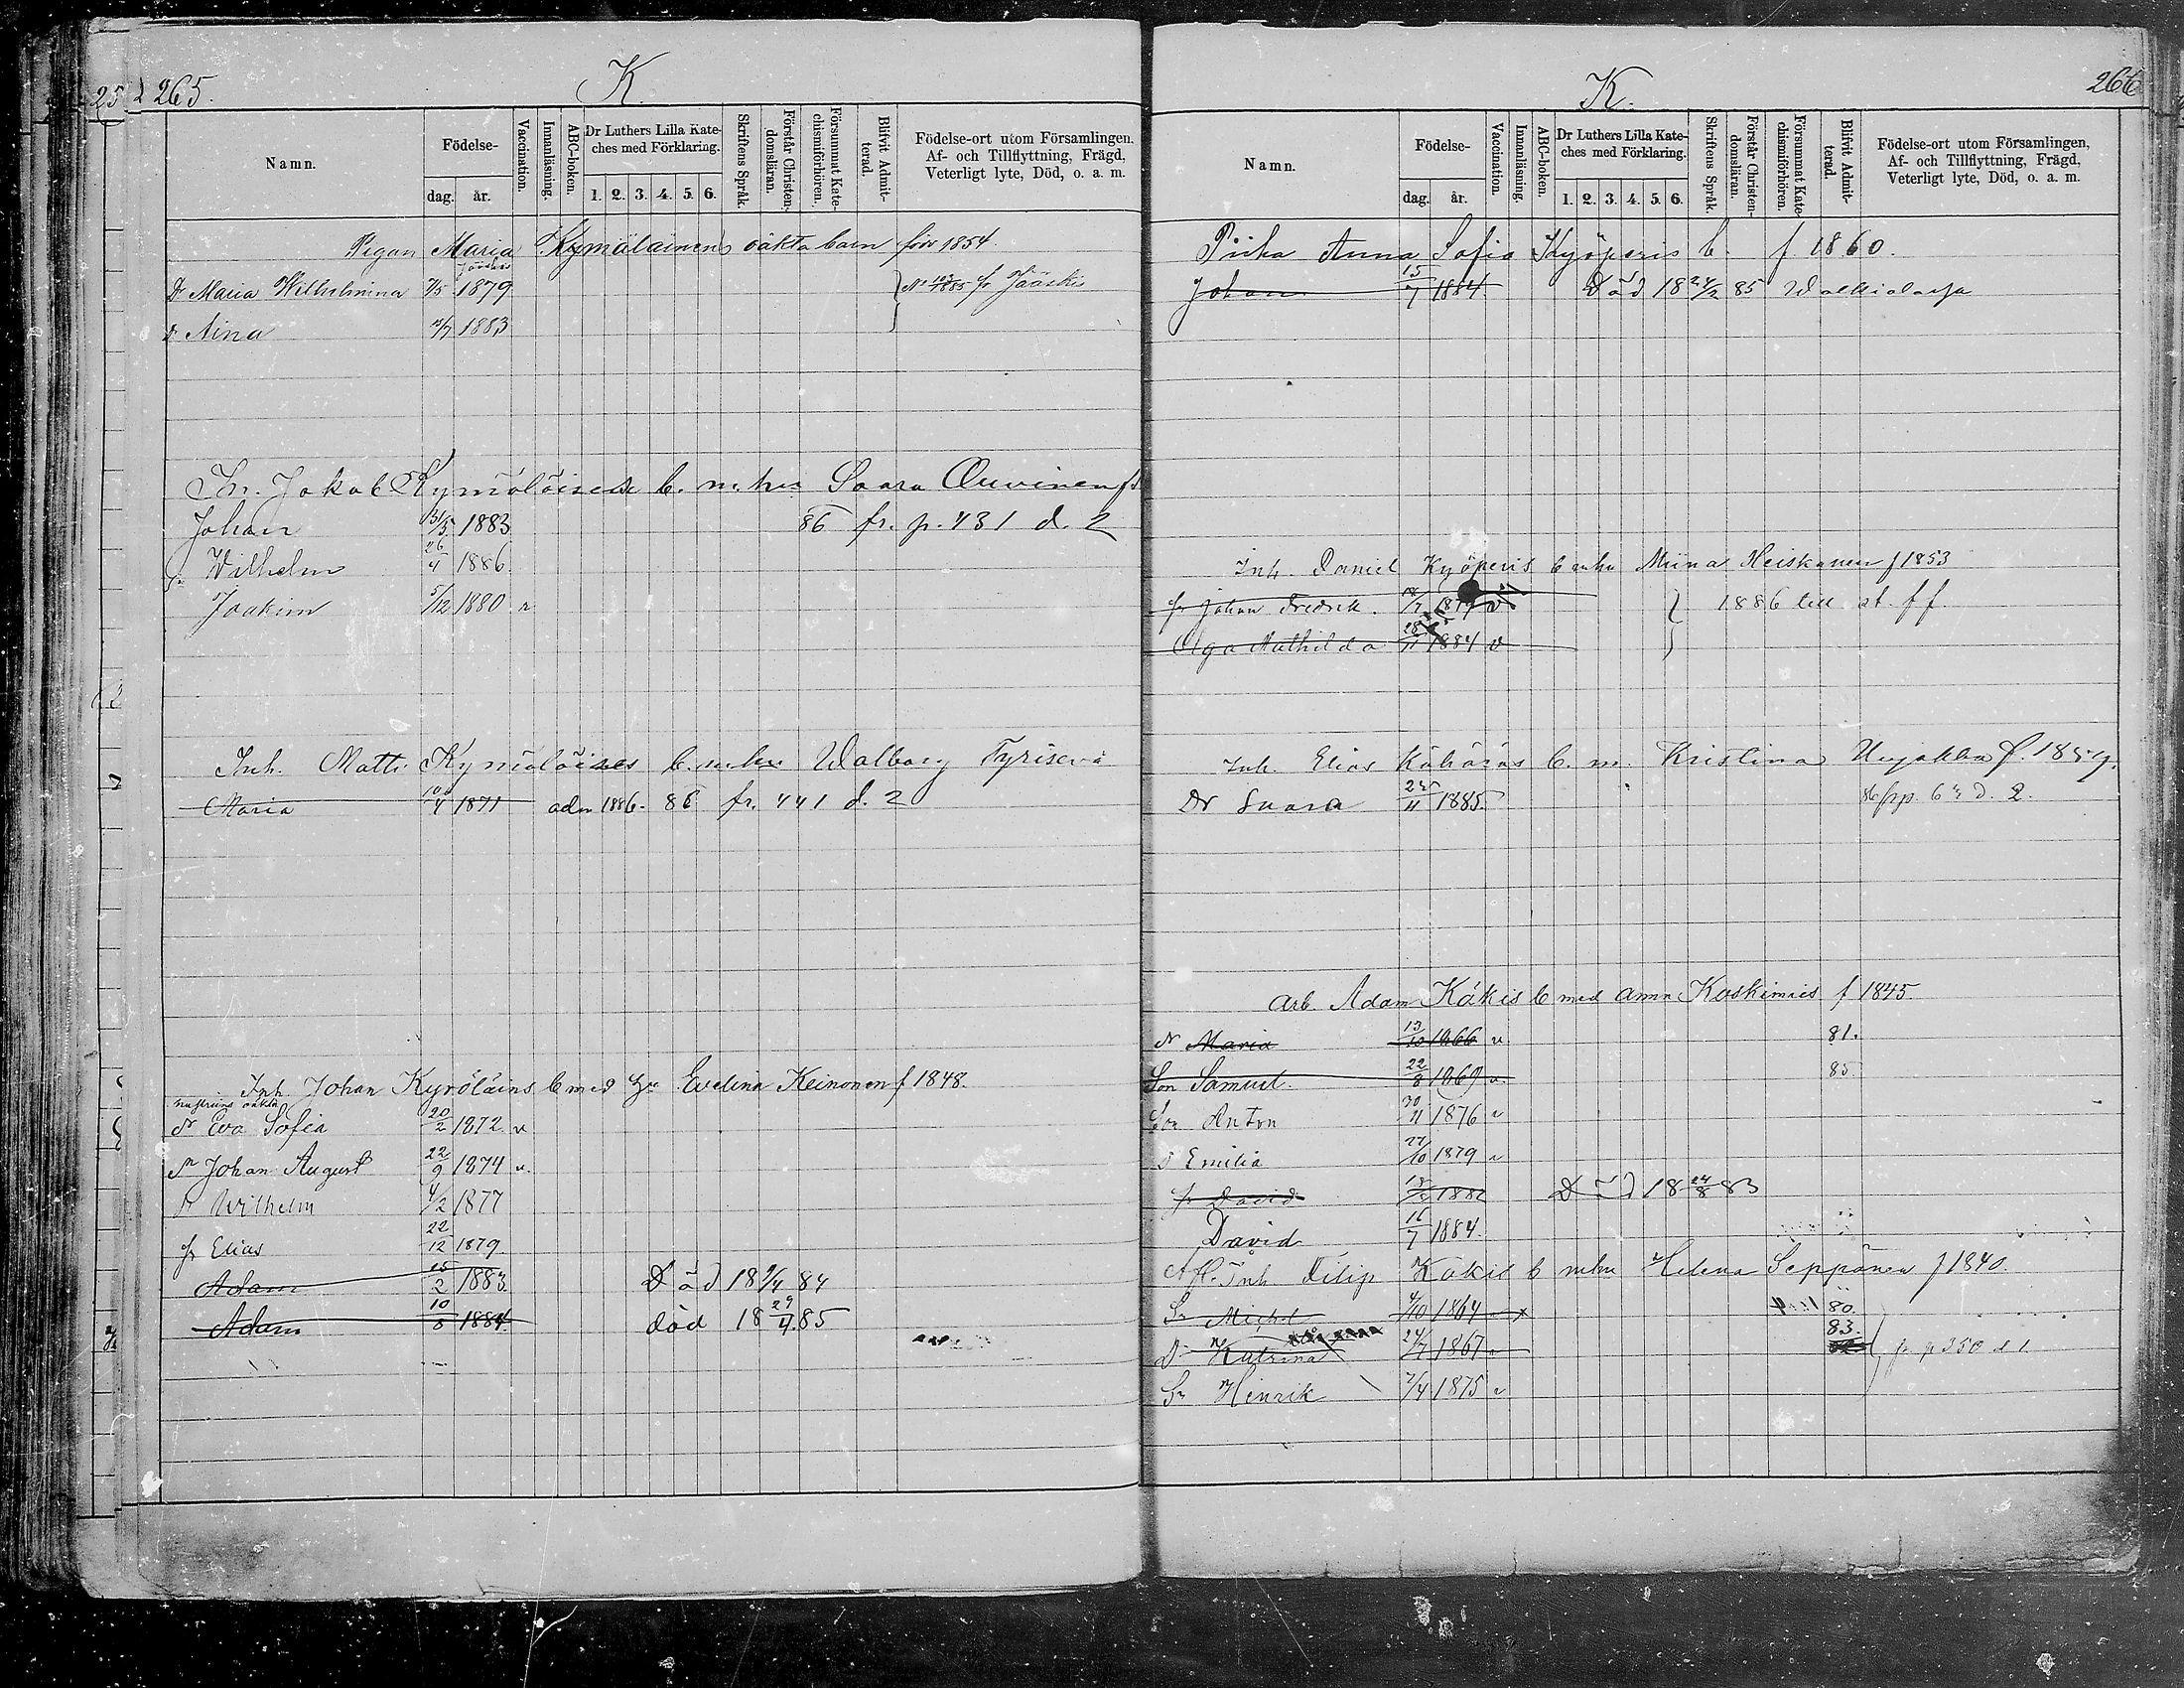 265.
K.
Namn.
Födelse-
dag. år.
Vaccination.
Innanläsning.
ABC-boken.
Dr Luthers Lilla Kate-
ches med Förklaring.
1. 2. 3. 4. 5. 6.
Skriftens Språk.
Förstår Christen-
domsläran.
Försummat Kate-
chismiförhören.
Blifvit Admit-
terad.
Födelse-ort utom Församlingen.
Af- och Tillflyttning, Frägd,
Veterligt lyte, Död, o. a. m.
Pigan Maria Kymäläinens oäkta barn 1854.
Jääskis
Dr Maria Wilhelmina 7/5 1879 1885 fr Jääskis
Dr Nina 1883
Inh. Jakob Kymäläisen b. m. hu Saara Ouvinen
Johan 31/3 1883 86 fr. p. 431 d. 2
Wilhelm 26/4 1886
Joakim 5/12 1880 v
Inh. Matts Kymäläises b. m. hu Walborg Tyrisevä
Maria 10/4 1871 adm 1886. 86 fr. 441 d. 2
Inh. Johan Kyröläins b med hu Evelina Keinonen f 1848.
hustruns oäkta
dr Eva Sofia 20/2 1872 v
sn Johan August 22/9 1874 v.
sn Wilhelm 4/2 1877
sn Elias 22/12 1879
Adam 15/2 1883. Död 18 9/4 84
Adam 10/8 1884. död 18 29/4 85
266
K.
Namn.
Födelse-
dag. år.
Vaccination.
Innanläsning.
ABC-boken.
Dr Luthers Lilla Kate-
ches med Förklaring.
1. 2. 3. 4. 5. 6.
Skriftens Språk.
Förstår Christen-
domsläran.
Försummat Kate-
chismiförhören.
Blifvit Admit-
terad.
Födelse-ort utom Församlingen,
Af- och Tillflyttning, Frägd,
Veterligt lyte, Död, o. a. m.
Piika Anna Sofia Kyöperis b. f. 1860.
Johan 15/7 1884. Död 18 24/2 85 Walkialarja
Inh. Daniel Kyöperis b mhu Miina Heiskanen f 1853
sn Johan Fredrik. 1879 v 1886 till st. ff.
Olga Mathilda 28/11 1884 v
Inh. Elias Kähäräs b. m. Kristina f. 1859.
Dr Saara 25/11 1885. 86 d. 2.
Arb. Adam Käkis b med Anna Koskimies f 1845.
dr Maria 13/10 1866 v 81.
Son Samuel. 22/8 1869 v. 85
Son Anton 30/11 1876 v
d Emilia 27/10 1879 v
sn David 1882 Död 18 24/8 83
David 16/7 1884.
Afl. Inh. Filip Käkis b mhu Helena Seppänen f 1840.
Sn Michel 4/10 1864 80.
D Katrina 24/7 1867 v 83. fr p 350 d 1
Sn Hinrik 7/4 1875 v